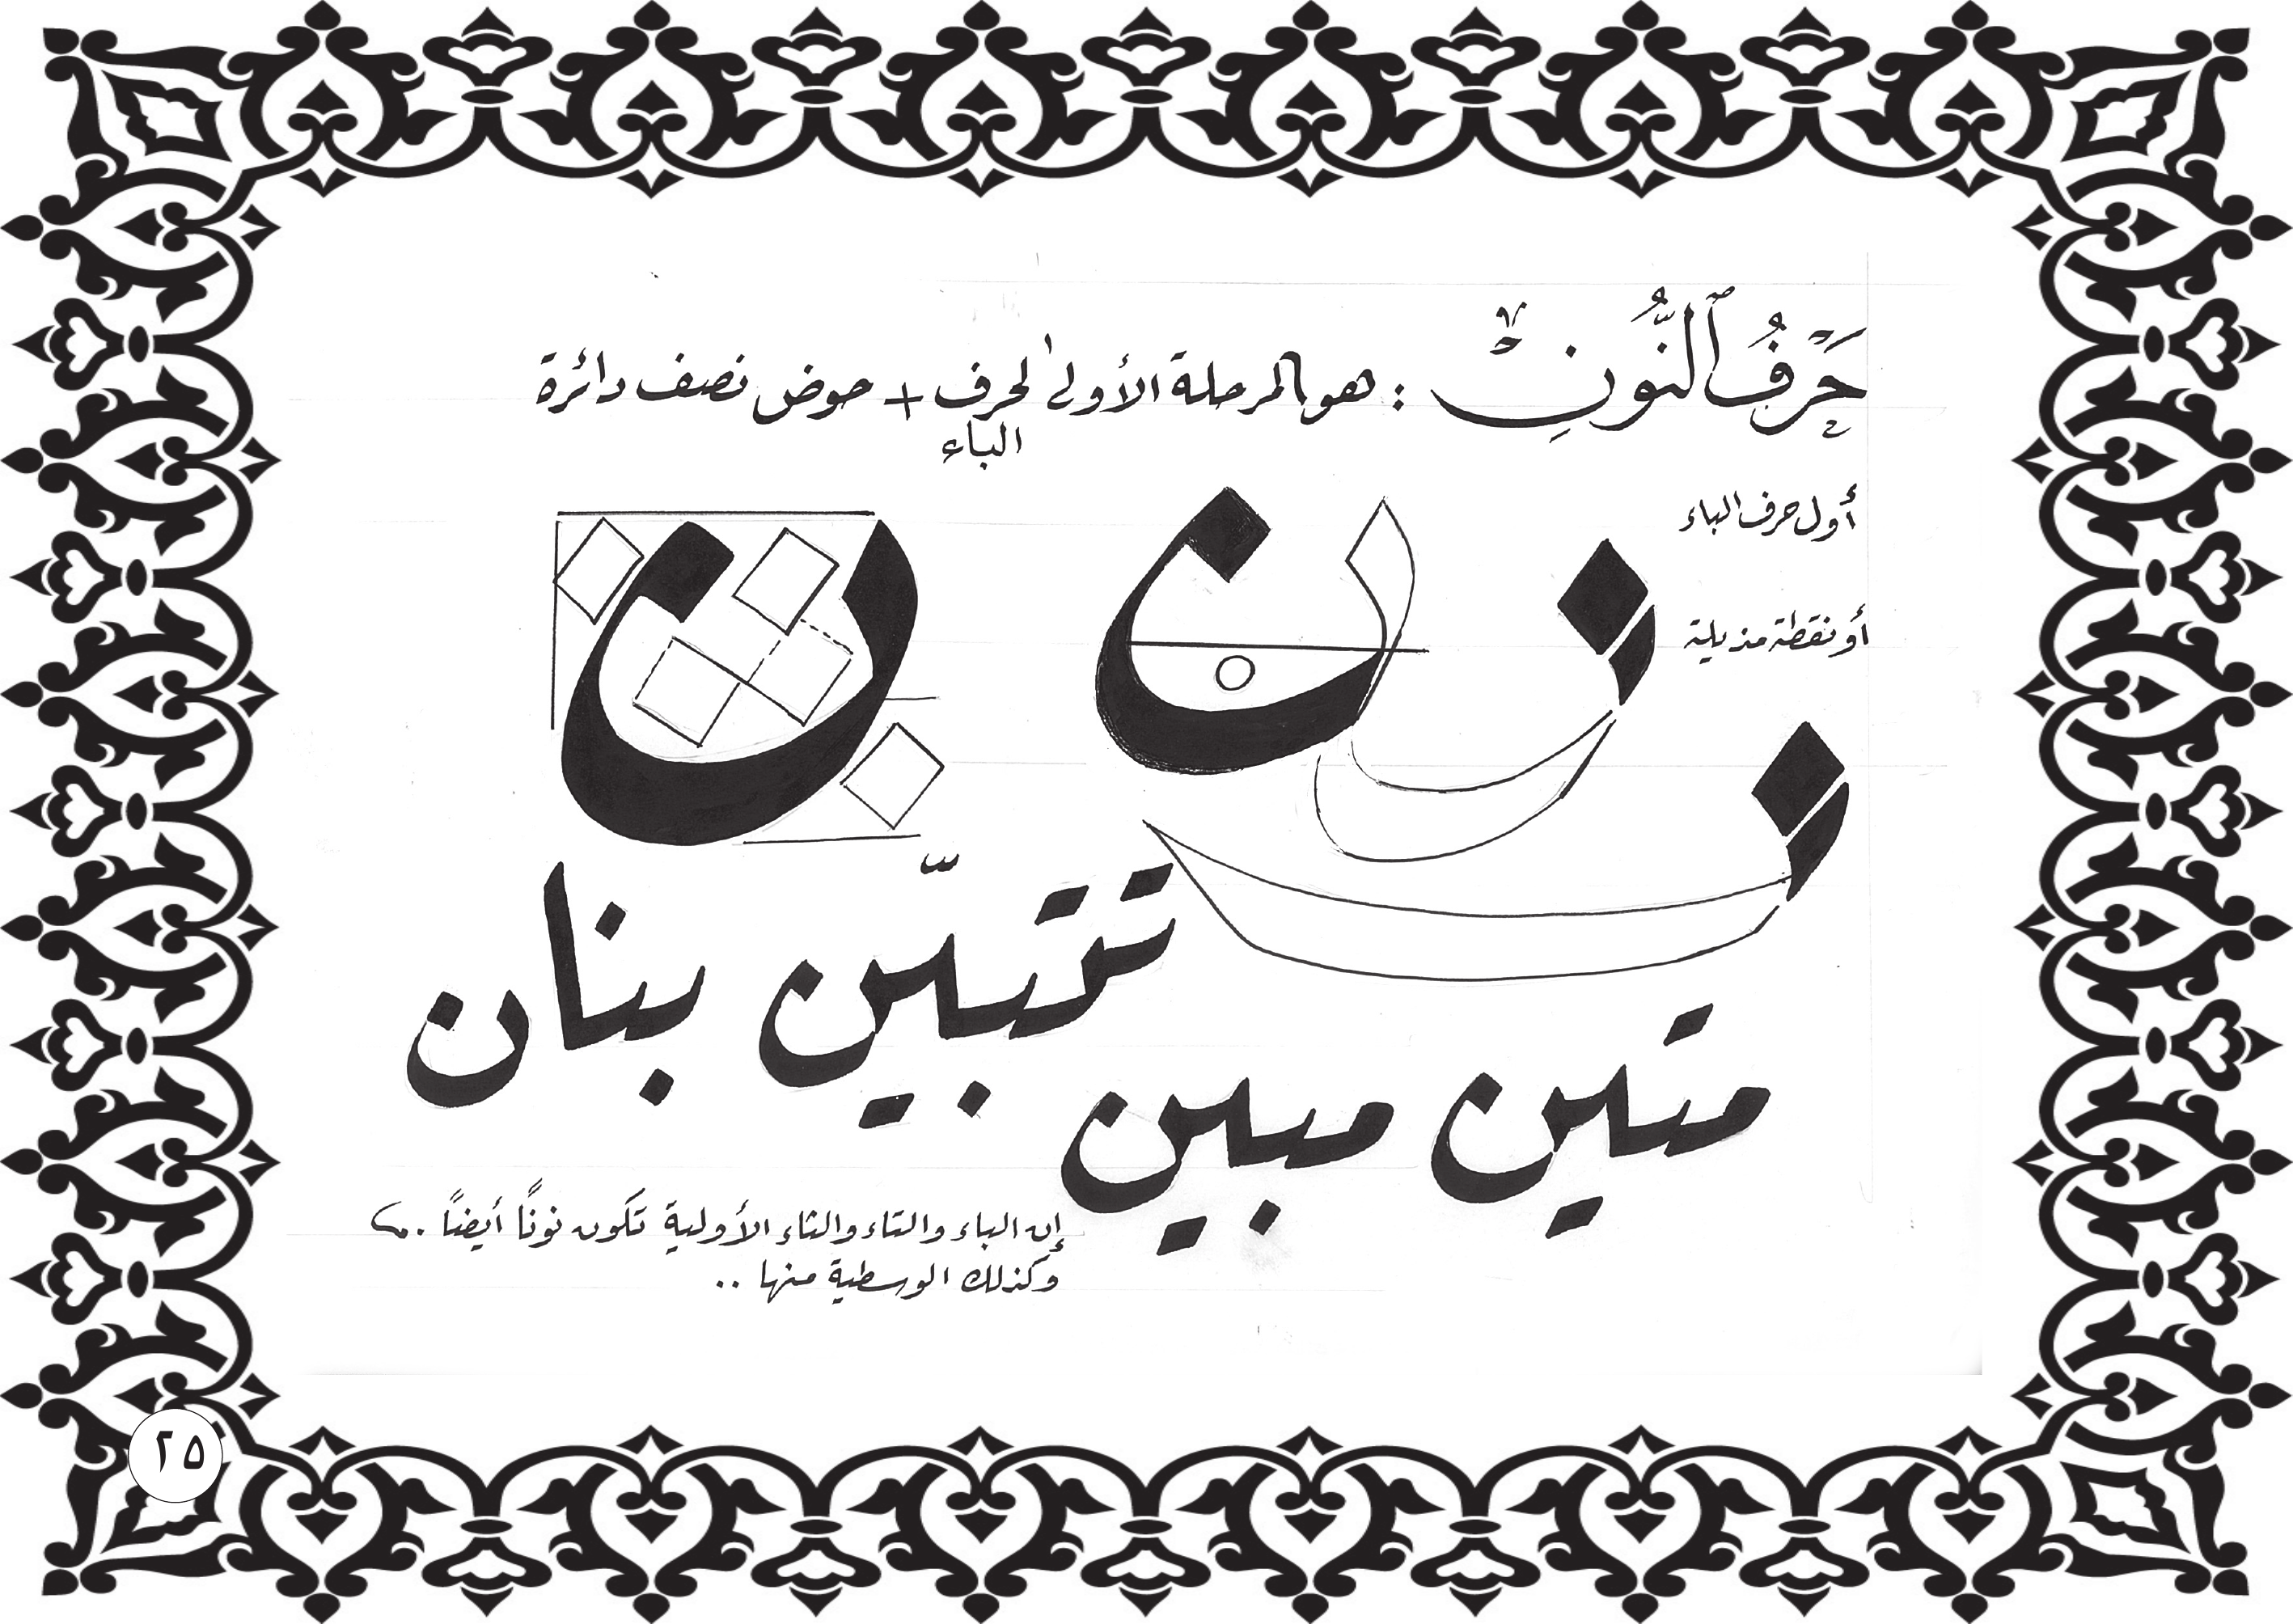 حَرْفُ ٱلنُّونِ : هو المرحلة الأولى لحرف + حوض نصف دائرة
الباء
أول حرف الباء
أو نقطة مذيلة
ن ن
تتبيّن بنان
متين مبين
إن الباء والتاء والثاء الأولية تكون نونًا أيضًا ..
وكذلك الوسطية منها ..
٢٥